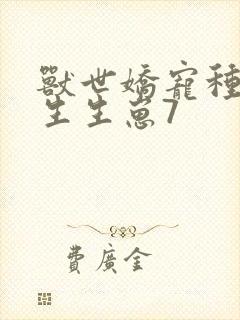 獸世嬌寵種
生生崽7
費廣金